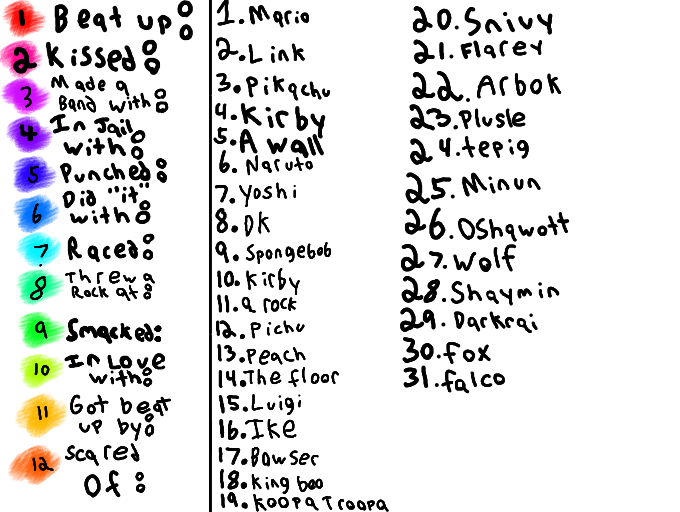 1 Beat up:
2 Kissed:
3 Made a
Band with:
4 In Jail
with:
5 Punched:
6 Did "it"
with:
7 Raced:
8 Threw a
Rock at:
9 Smacked:
10 In Love
with:
11 Got beat
up by:
12 scared
Of:
1. Mario
2. Link
3. Pikachu
4. Kirby
5. A wall
6. Naruto
7. Yoshi
8. DK
9. Spongebob
10. Kirby
11. a rock
12. Pichu
13. Peach
14. The floor
15. Luigi
16. Ike
17. Bowser
18. King boo
19. Koopa Troopa
20. Snivy
21. Flarey
22. Arbok
23. Plusle
24. tepig
25. Minun
26. Oshawott
27. Wolf
28. Shaymin
29. Darkrai
30. Fox
31. falco